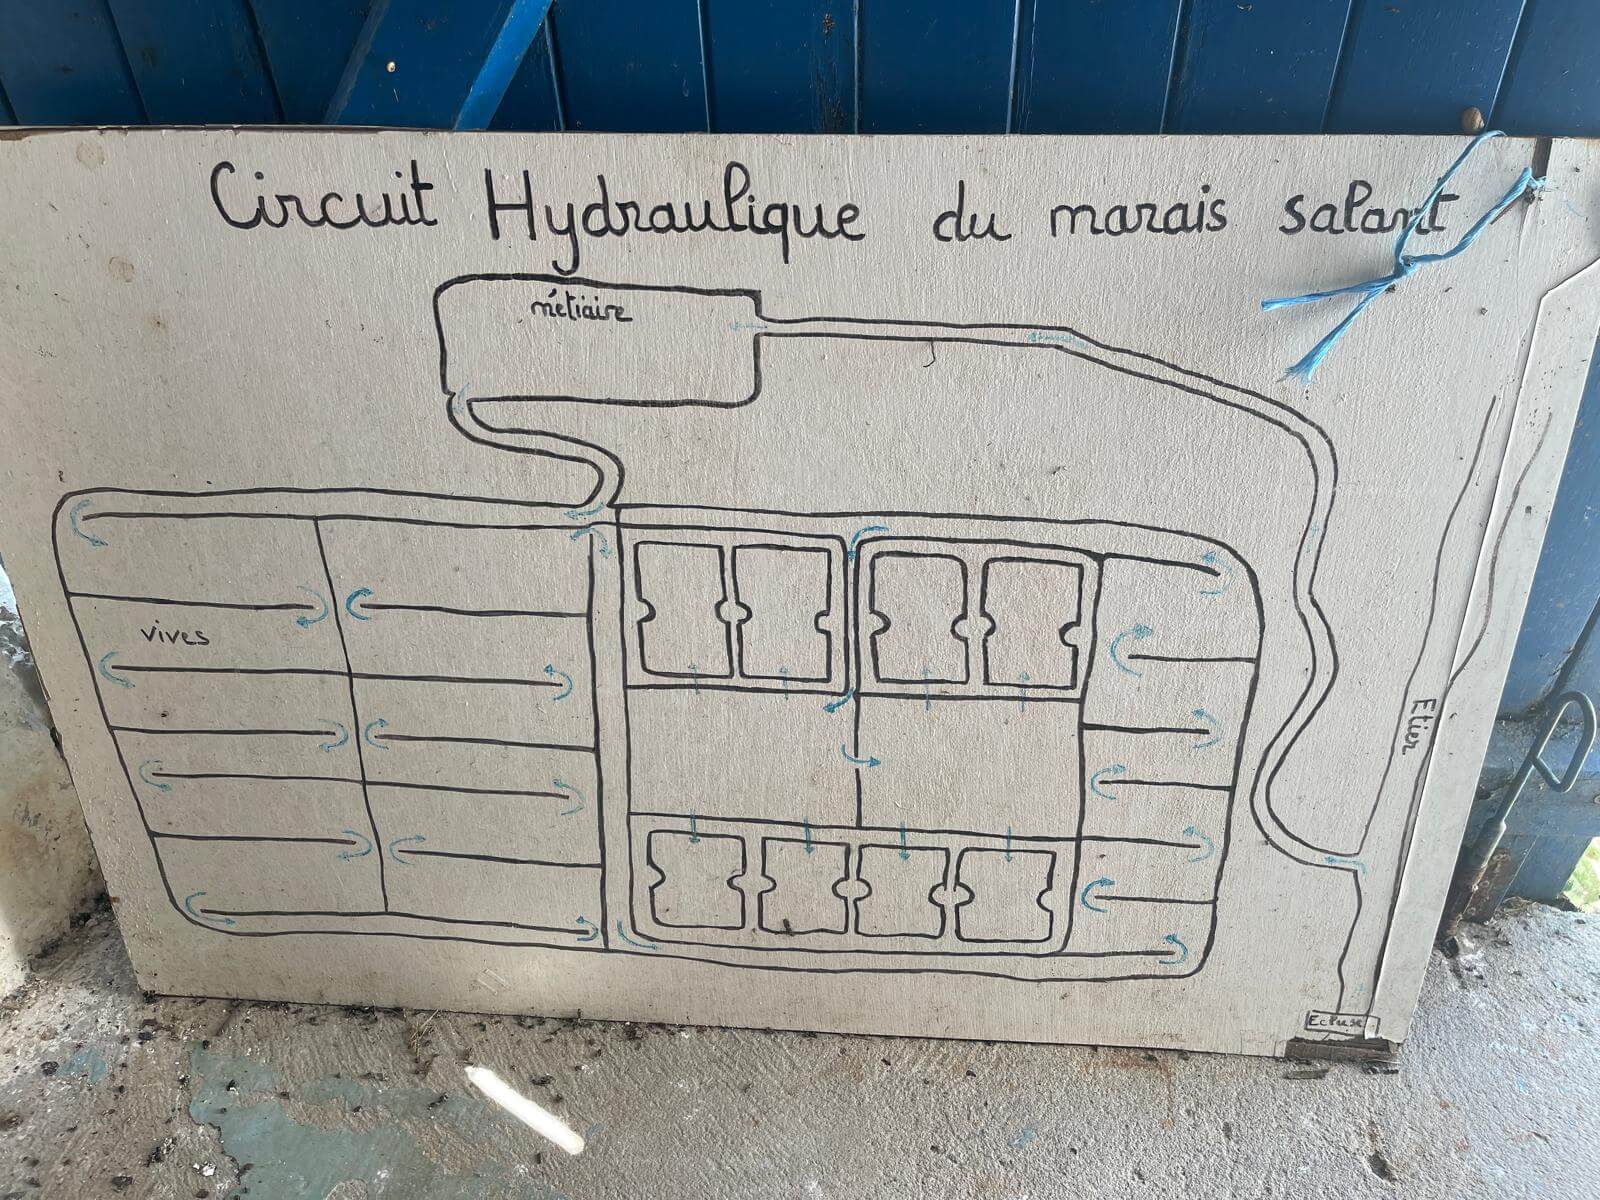 Circuit Hydraulique du marais salant
métiaire
vives
Etier
Ecluse